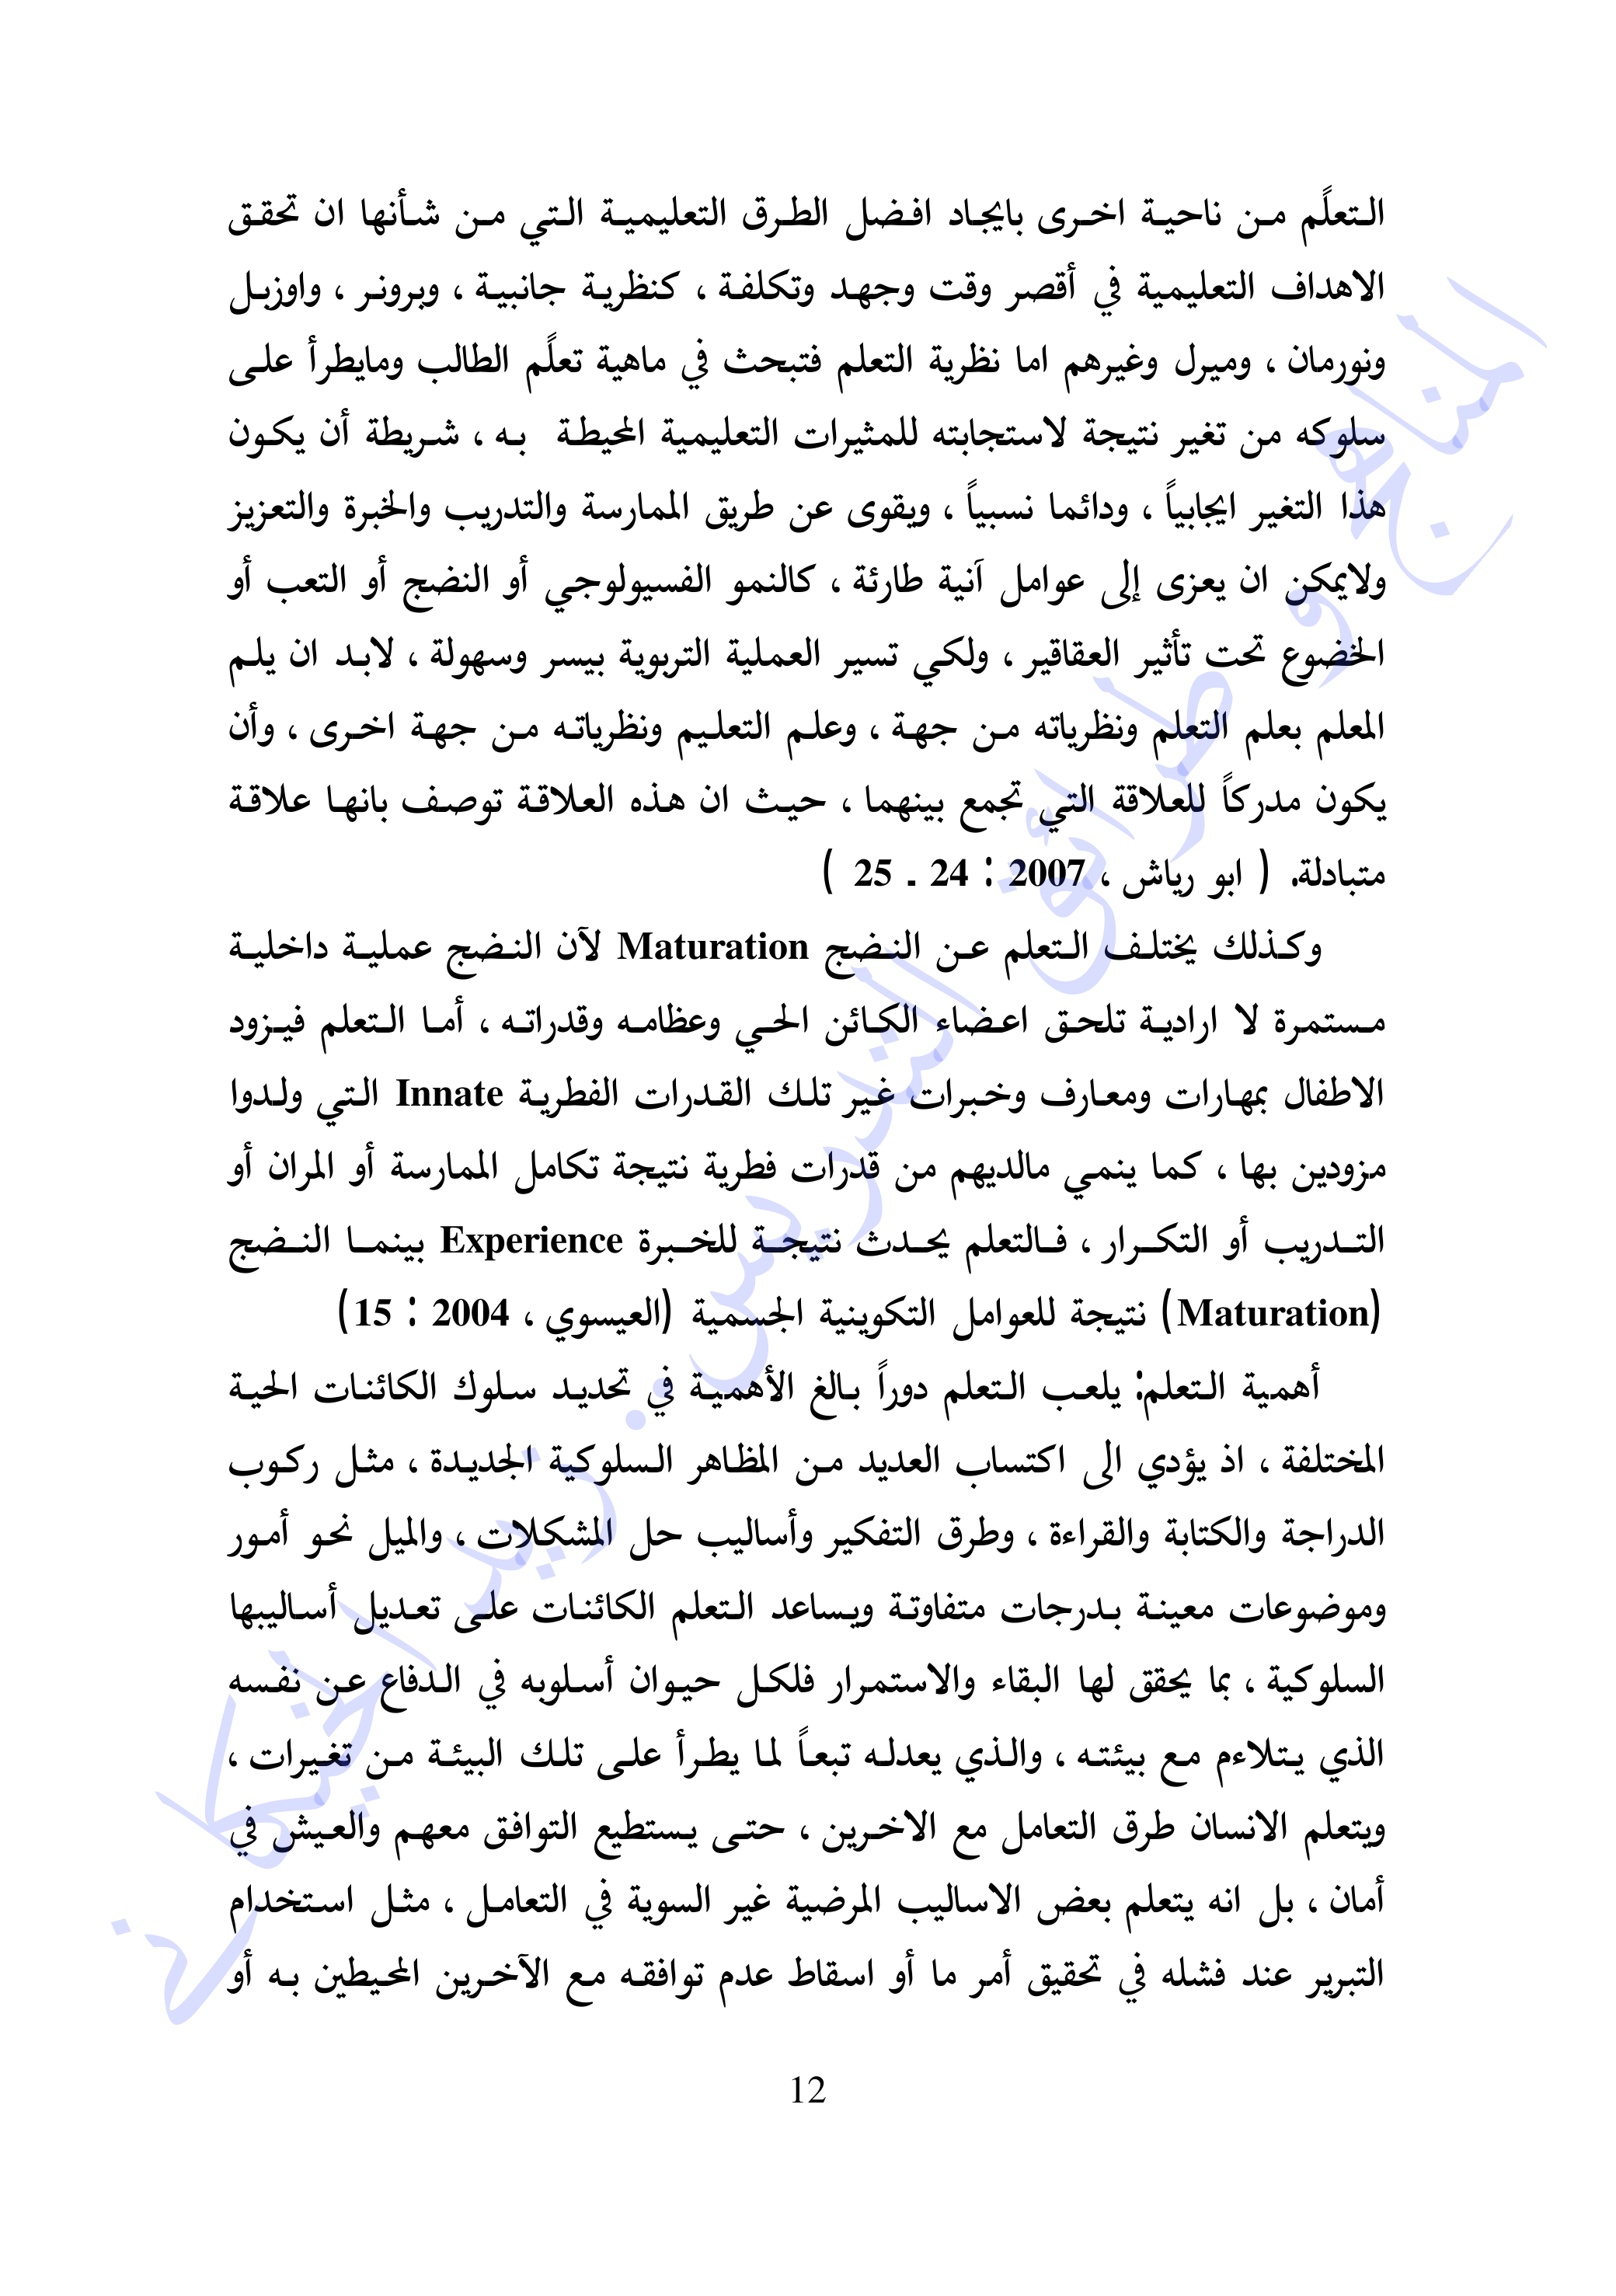 التعلًم من ناحية اخرى بايجاد افضل الطرق التعليمية التي من شأنها ان تحقق
الاهداف التعليمية في أقصر وقت وجهد وتكلفة ، كنظرية جانبية ، وبرونر ، واوزبل
ونورمان ، وميرل وغيرهم اما نظرية التعلم فتبحث في ماهية تعلًم الطالب ومايطرأ على
سلوكه من تغير نتيجة لاستجابته للمثيرات التعليمية المحيطة به ، شريطة أن يكون
هذا التغير ايجابياً ، ودائما نسبياً ، ويقوى عن طريق الممارسة والتدريب والخبرة والتعزيز
ولايمكن ان يعزى إلى عوامل آنية طارئة ، كالنمو الفسيولوجي أو النضج أو التعب أو
الخضوع تحت تأثير العقاقير ، ولكي تسير العملية التربوية بيسر وسهولة ، لابد ان يلم
المعلم بعلم التعلم ونظرياته من جهة ، وعلم التعليم ونظرياته من جهة اخرى ، وأن
يكون مدركاً للعلاقة التي تجمع بينهما ، حيث ان هذه العلاقة توصف بانها علاقة
متبادلة. ( ابو رياش ، 2007 : 24 ـ 25 )
وكذلك يختلف التعلم عن النضج Maturation لآن النضج عملية داخلية
مستمرة لا ارادية تلحق اعضاء الكائن الحي وعظامه وقدراته ، أما التعلم فيزود
الاطفال بمهارات ومعارف وخبرات غير تلك القدرات الفطرية Innate التي ولدوا
مزودين بها ، كما ينمي مالديهم من قدرات فطرية نتيجة تكامل الممارسة أو المران أو
التدريب أو التكرار ، فالتعلم يحدث نتيجة للخبرة Experience بينما النضج
(Maturation) نتيجة للعوامل التكوينية الجسمية (العيسوي ، 2004 : 15)
أهمية التعلم: يلعب التعلم دوراً بالغ الأهمية في تحديد سلوك الكائنات الحية
المختلفة ، اذ يؤدي الى اكتساب العديد من المظاهر السلوكية الجديدة ، مثل ركوب
الدراجة والكتابة والقراءة ، وطرق التفكير وأساليب حل المشكلات ، والميل نحو أمور
وموضوعات معينة بدرجات متفاوتة ويساعد التعلم الكائنات على تعديل أساليبها
السلوكية ، بما يحقق لها البقاء والاستمرار فلكل حيوان أسلوبه في الدفاع عن نفسه
الذي يتلاءم مع بيئته ، والذي يعدله تبعاً لما يطرأ على تلك البيئة من تغيرات ،
ويتعلم الانسان طرق التعامل مع الاخرين ، حتى يستطيع التوافق معهم والعيش في
أمان ، بل انه يتعلم بعض الاساليب المرضية غير السوية في التعامل ، مثل استخدام
التبرير عند فشله في تحقيق أمر ما أو اسقاط عدم توافقه مع الآخرين المحيطين به أو
12